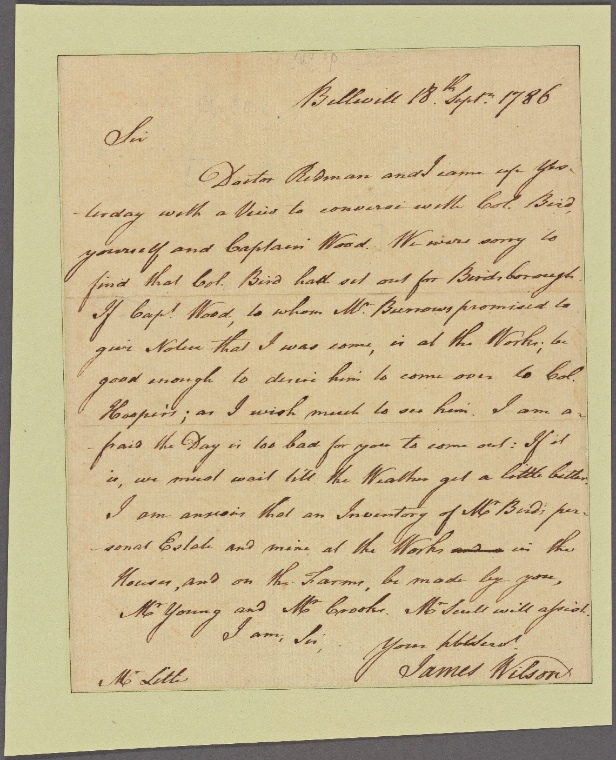 Bellevill 18th. Septr. 1786
Sir
Doctor Redman and I came up Yes-
-terday with a View to converse with Col. Bird,
yourself and Captain Wood. We were sorry to
find that Col. Bird had set out for Birdsborough.
If Capt. Wood, to whom Mr. Burrows promised to
give Notice that I was come, is at the Works; be
good enough to desire him to come over to Col.
Hooper's; as I wish much to see him. I am a-
-fraid the Day is too bad for you to come out: If it
is, we must wait till the Weather get a little better.
I am anxious that an Inventory of Mr. Bird's per-
-sonal Estate and mine at the Works and in the
Houses, and on the Farms, be made by you,
Mr. Young and Mr. Crooks. Mr. Scull will assist.
I am, Sir,
Your
James Wilson
Mr.